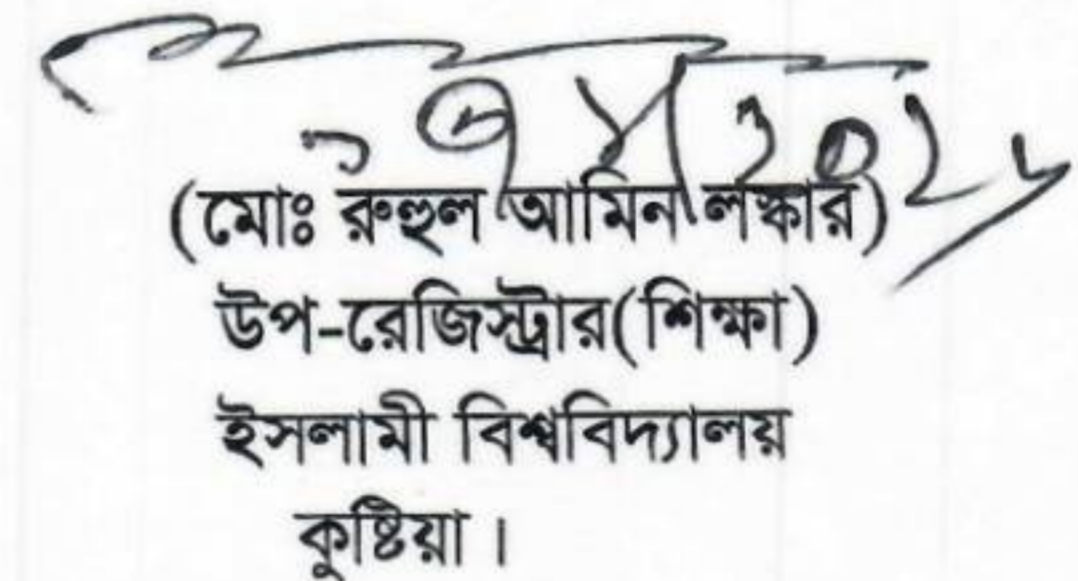 (মোঃ রুহুল আমিন লস্কার)
উপ-রেজিস্ট্রার(শিক্ষা)
ইসলামী বিশ্ববিদ্যালয়
কুষ্টিয়া।